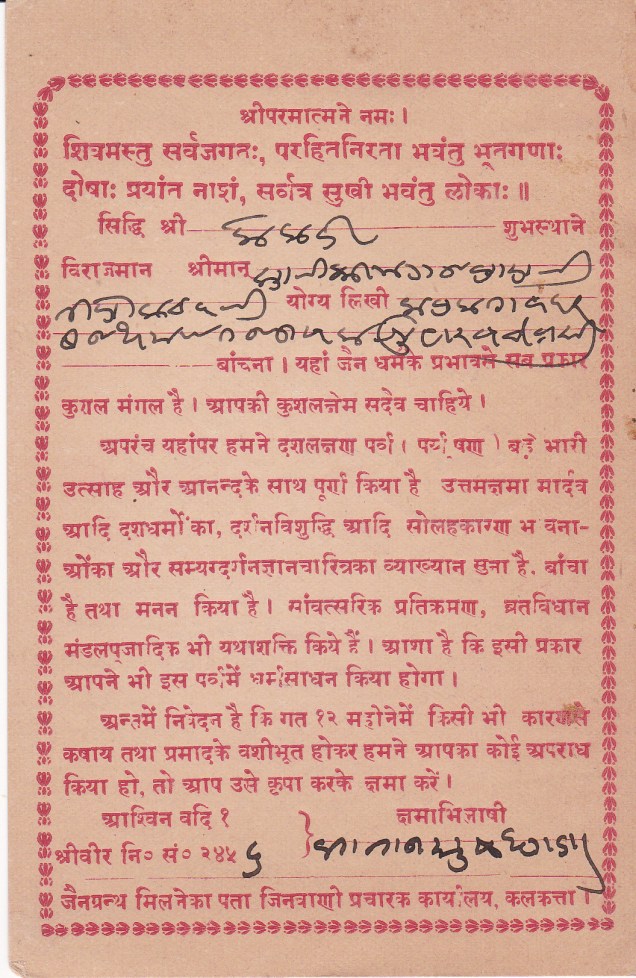 श्रीपरमात्मने नमः।
शिवमस्तु सर्वजगतः, परहितनिरता भवंतु भूतगणाः
दोषाः प्रयांत नाशं, सर्वात्र सुखी भवंतु लोकाः॥
सिद्धि श्री शुभस्थाने
विराजमान श्रीमान्
योग्य लिखी
बांचना। यहां जैन धर्मके प्रभावसे सब प्रकार
कुशल मंगल है। आपकी कुशलक्षेम सदैव चाहिये।
अपरंच यहांपर हमने दशलक्षण पर्व। पर्यूषण) बड़े भारी
उत्साह और आनन्दके साथ पूर्ण किया है उत्तमक्षमा मार्दव
आदि दशधर्मोंका, दर्शनविशुद्धि आदि सोलहकारण भ वना-
ओंका और सम्यग्दर्शनज्ञानचारित्रका व्याख्यान सुना है, बांचा
है तथा मनन किया है। सांवत्सरिक प्रतिक्रमण, व्रतविधान
मंडलपूजादिक भी यथाशक्ति किये हैं। आशा है कि इसी प्रकार
आपने भी इस पर्वमें धर्मसाधन किया होगा।
अन्तमें निवेदन है कि गत १२ महीनेमें किसी भी कारणसे
कषाय तथा प्रमादके वशीभूत होकर हमने आपका कोई अपराध
किया हो, तो आप उसे कृपा करके क्षमा करें।
आश्विन वदि १ क्षमाभिलाषी
श्रीवीर नि० सं० २४५
जैनग्रन्थ मिलनेका पता जिनवाणी प्रचारक कार्यालय, कलकत्ता।